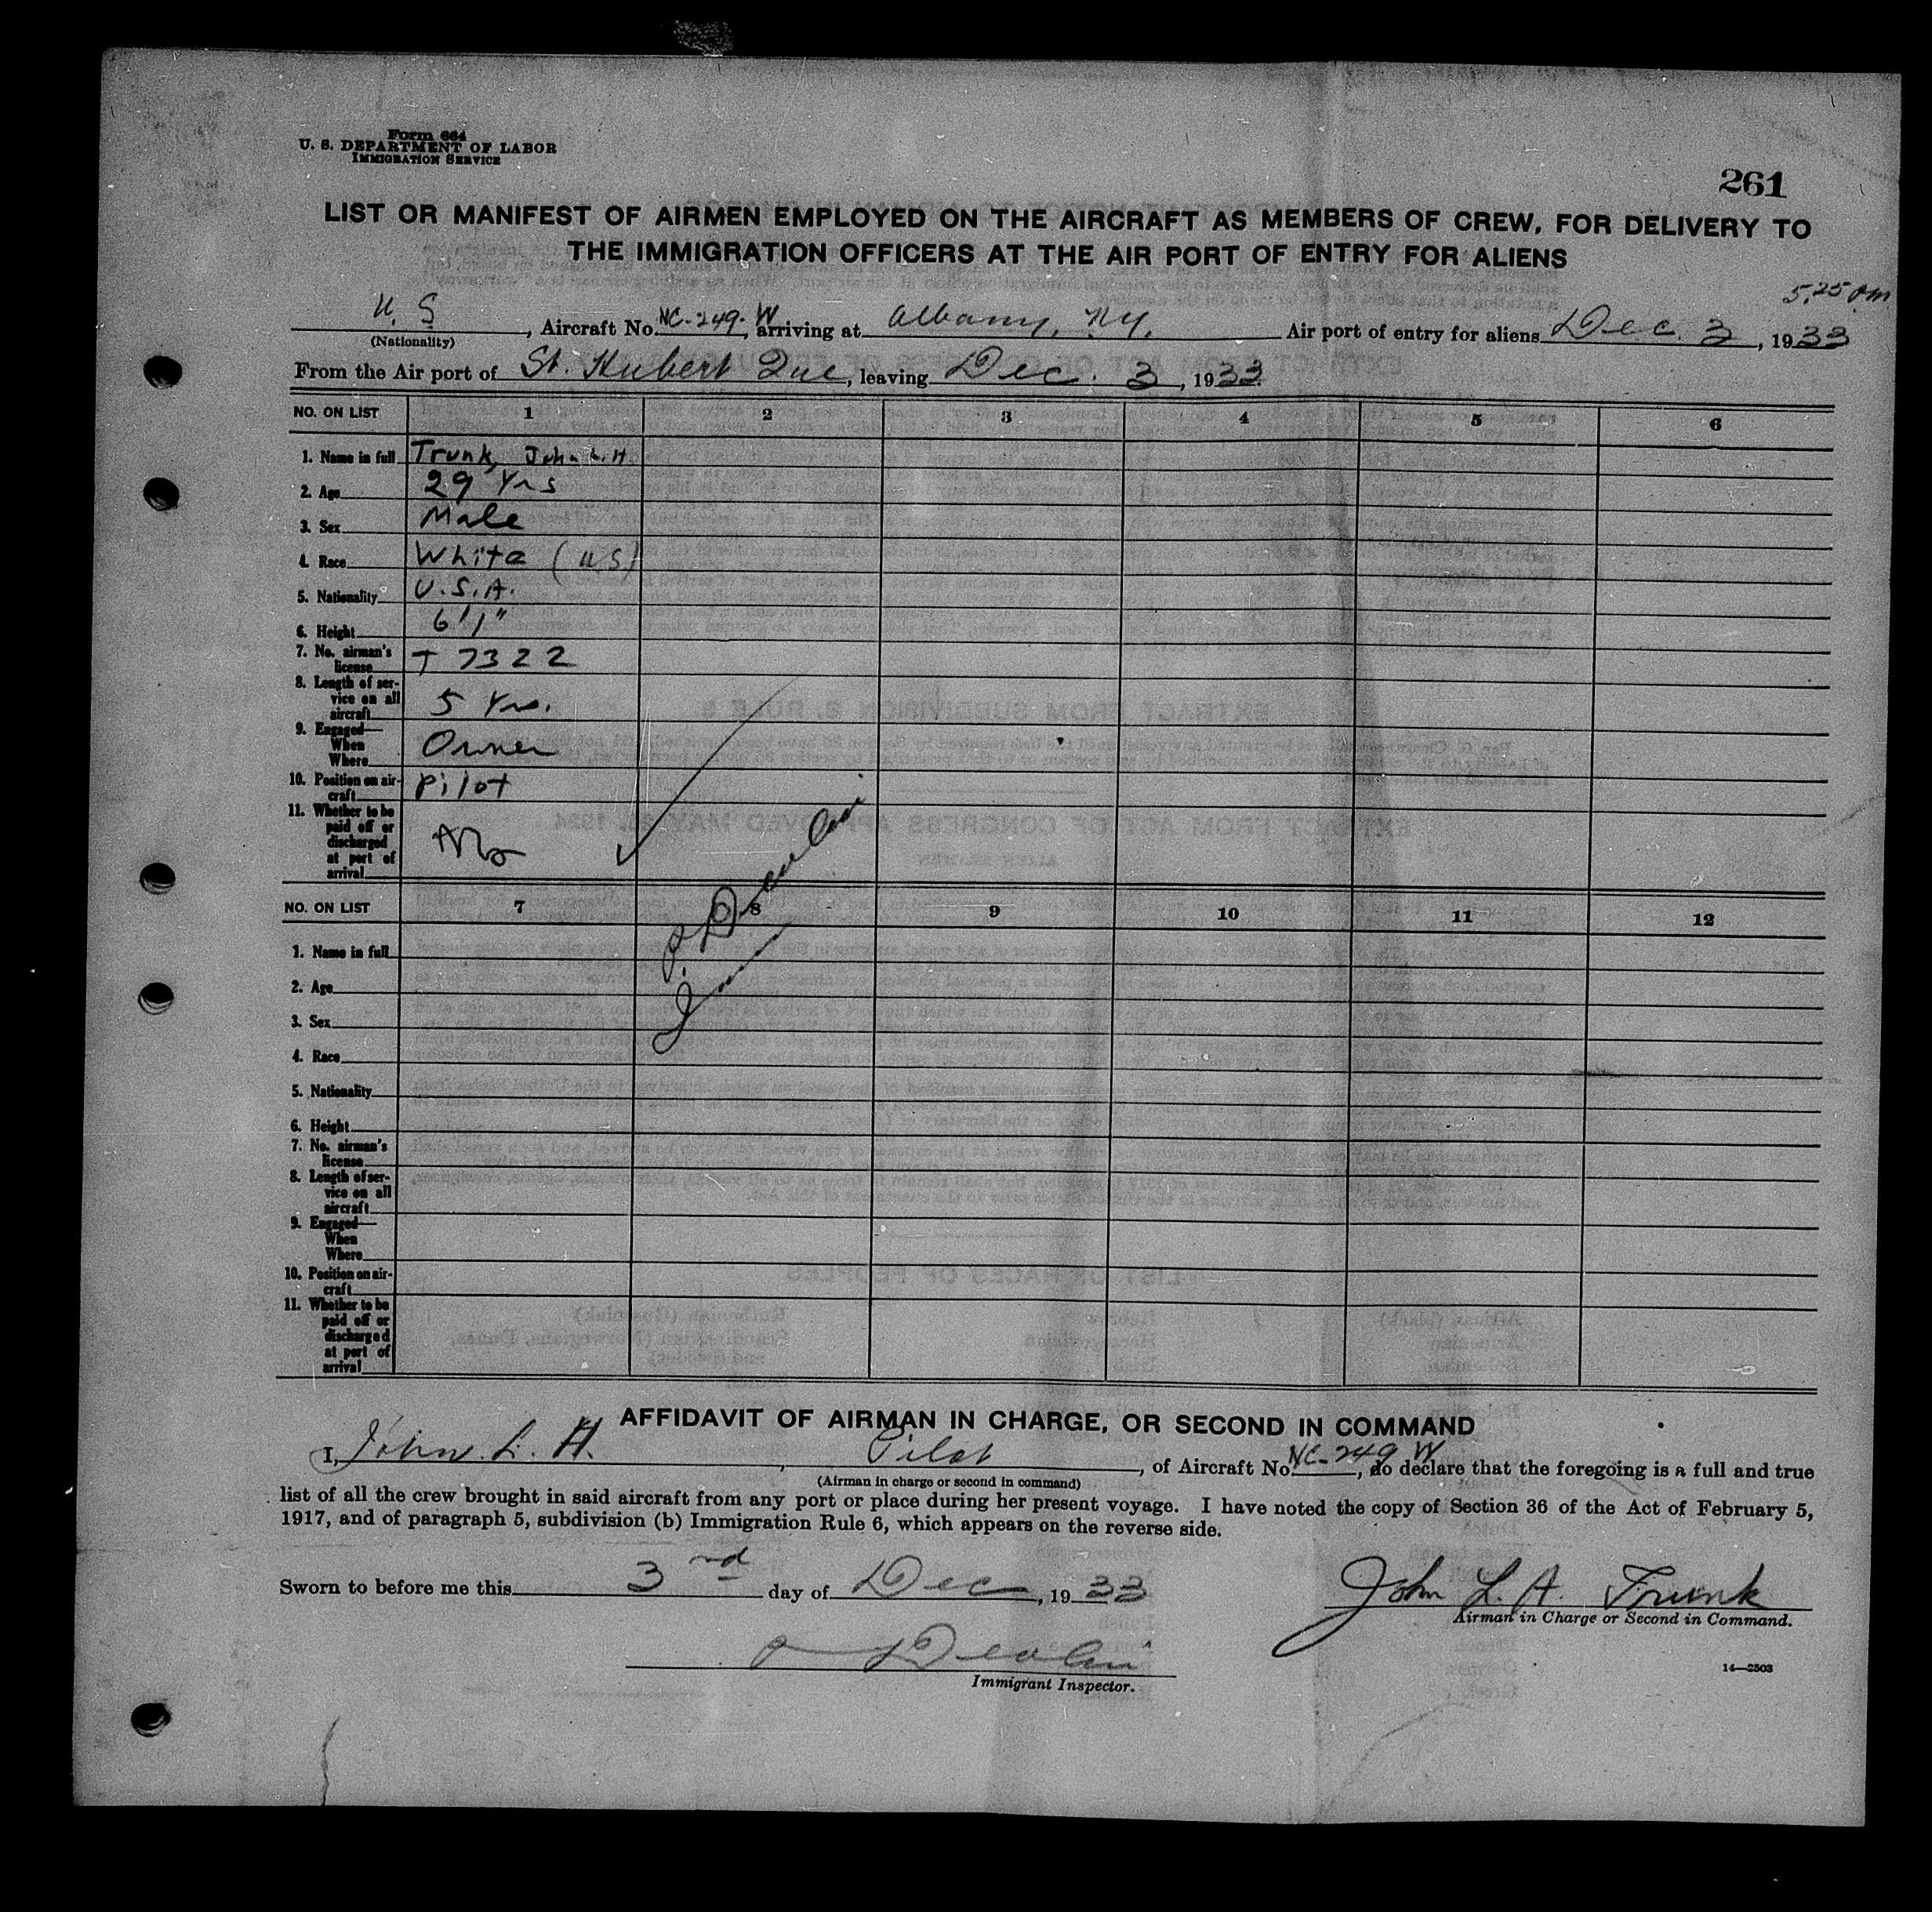 Form 664
U. S. DEPARTMENT OF LABOR
IMMIGRATION SERVICE
261
LIST OR MANIFEST OF AIRMEN EMPLOYED ON THE AIRCRAFT AS MEMBERS OF CREW, FOR DELIVERY TO
THE IMMIGRATION OFFICERS AT THE AIR PORT OF ENTRY FOR ALIENS
5.25 pm
U. S, Aircraft No. NC-249-W, arriving at Albany, N.Y. Air port of entry for aliens Dec. 3, 1933
(Nationality)
From the Air port of St. Hubert Que, leaving Dec. 3, 1933
NO. ON LIST 1 2 3 4 5 6
1. Name in full Trunk, John L. H
2. Age 29 Yrs
3. Sex Male
4. Race White (US)
5. Nationality U.S.A.
6. Height 6'1"
7. No. airman's
license T 7322
8. Length of ser-
vice on all
aircraft 5 Yrs.
9. Engaged—
When
Where Owner
10. Position on air-
craft Pilot
11. Whether to be
paid off or
discharged
at port of
arrival No
P. Devlin
NO. ON LIST 7 8 9 10 11 12
1. Name in full
2. Age
3. Sex
4. Race
5. Nationality
6. Height
7. No. airman's
license
8. Length of ser-
vice on all
aircraft
9. Engaged—
When
Where
10. Position on air-
craft
11. Whether to be
paid off or
discharged
at port of
arrival
AFFIDAVIT OF AIRMAN IN CHARGE, OR SECOND IN COMMAND
I, John L. H., Pilot, of Aircraft No. NC-249 W, do declare that the foregoing is a full and true
(Airman in charge or second in command)
list of all the crew brought in said aircraft from any port or place during her present voyage. I have noted the copy of Section 36 of the Act of February 5,
1917, and of paragraph 5, subdivision (b) Immigration Rule 6, which appears on the reverse side.
Sworn to before me this 3rd day of Dec, 1933
John L. H. Trunk
Airman in Charge or Second in Command.
P Devlin
Immigrant Inspector.
14—2503